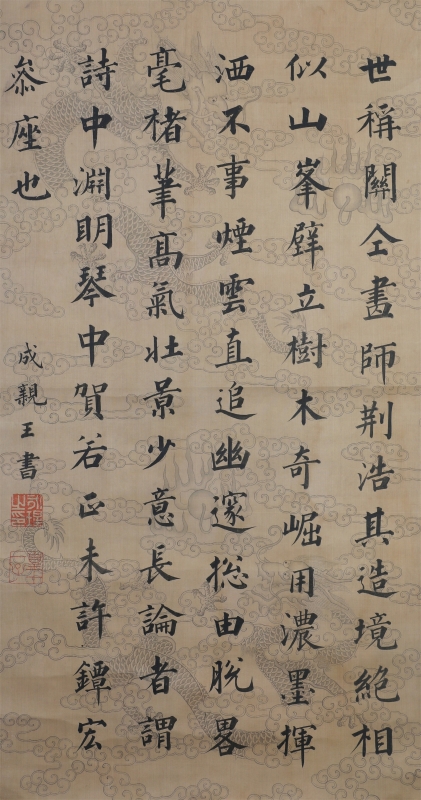 世稱關仝畫師荆浩其造境絶相
似山峯壁立樹木奇崛用濃墨揮
洒不事煙雲直追幽邃揔由脫畧
毫楮筆高氣壯景少意長論者謂
詩中淵明琴中賀若正未許鐔宏
叅座也
成親王書